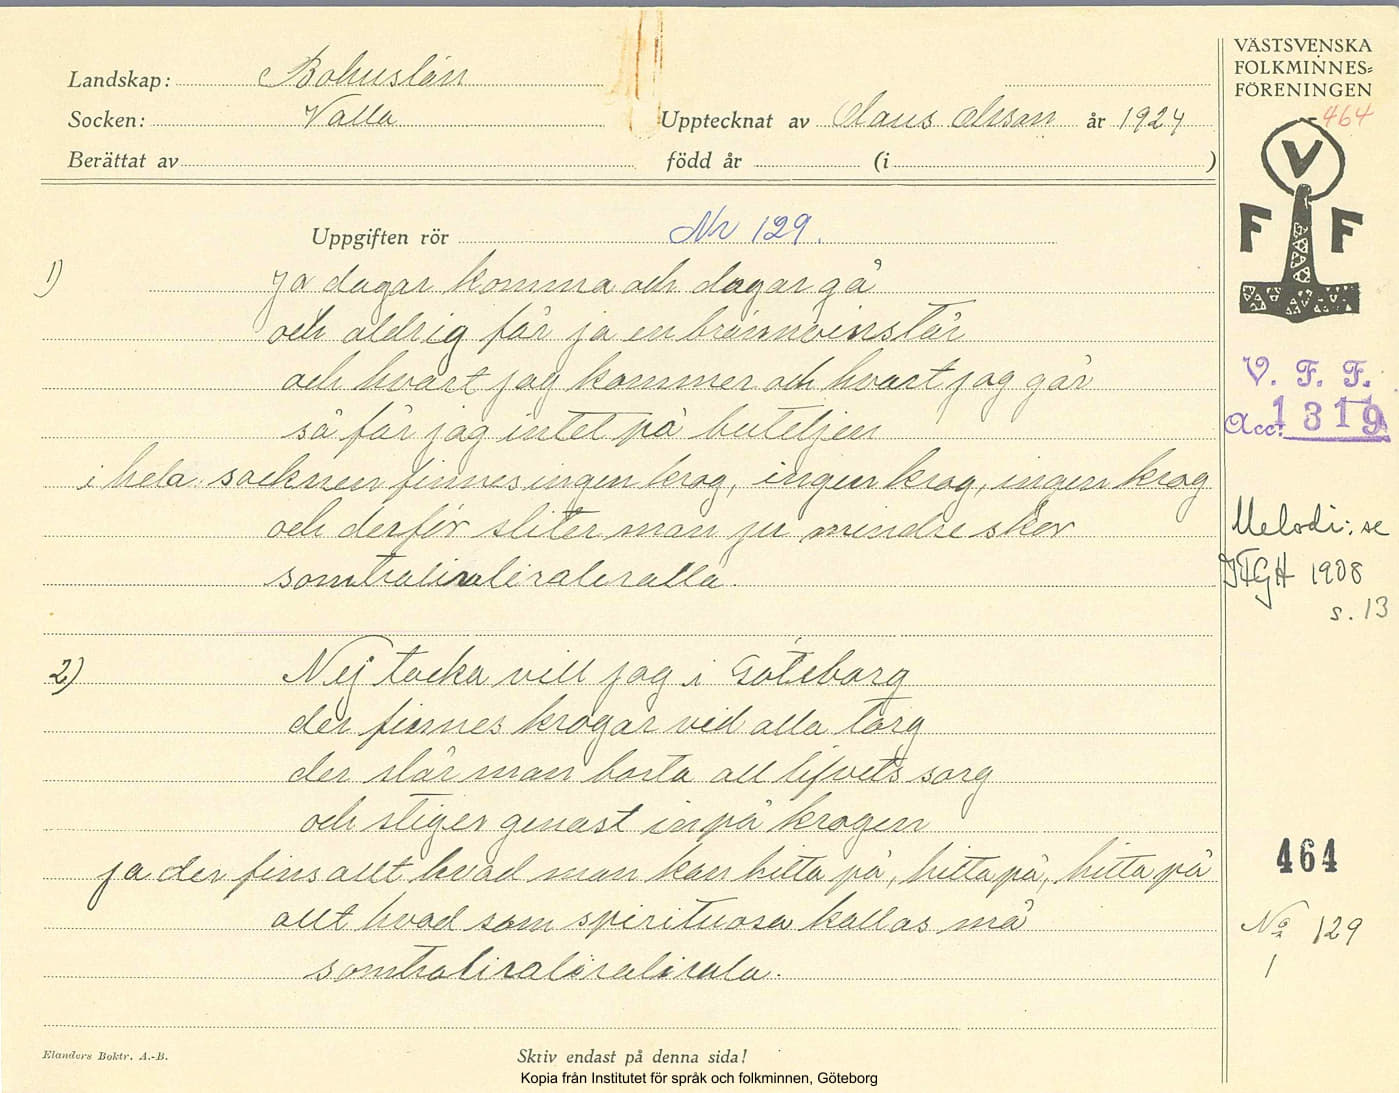 Landskap: Bohuslän
Socken: Valla
Upptecknat av Claus Olsson år 1924
Berättat av född år (i )
VÄSTSVENSKA
FOLKMINNES=
FÖRENINGEN
464
V
F F
V. F. F.
Acc: 1319
Melodi: se
1908
s. 13
464
No 129
1
Uppgiften rör Nr 129.
1) Ja dagar komma och dagar gå
och aldrig får ja en brännvinstår
och hvart jag kommer och hvart jag går
så får jag intet på buteljen
i hela socknen finnes ingen krog, ingen krog, ingen krog
och derför sliter man ju mindre skor
somtraliraliraleralla.
2) Nej tacka vill jag i Göteborg
der finnes krogar vid alla torg
der slår man borta all lifvets sorg
och stiger genast inpå krogen
ja der fins allt hvad man kan hitta på, hitta på, hitta på
allt hvad som spirituosa kallas må
somtraliraliralirala.
Elanders Boktr. A.-B.
Skriv endast på denna sida!
Kopia från Institutet för språk och folkminnen, Göteborg